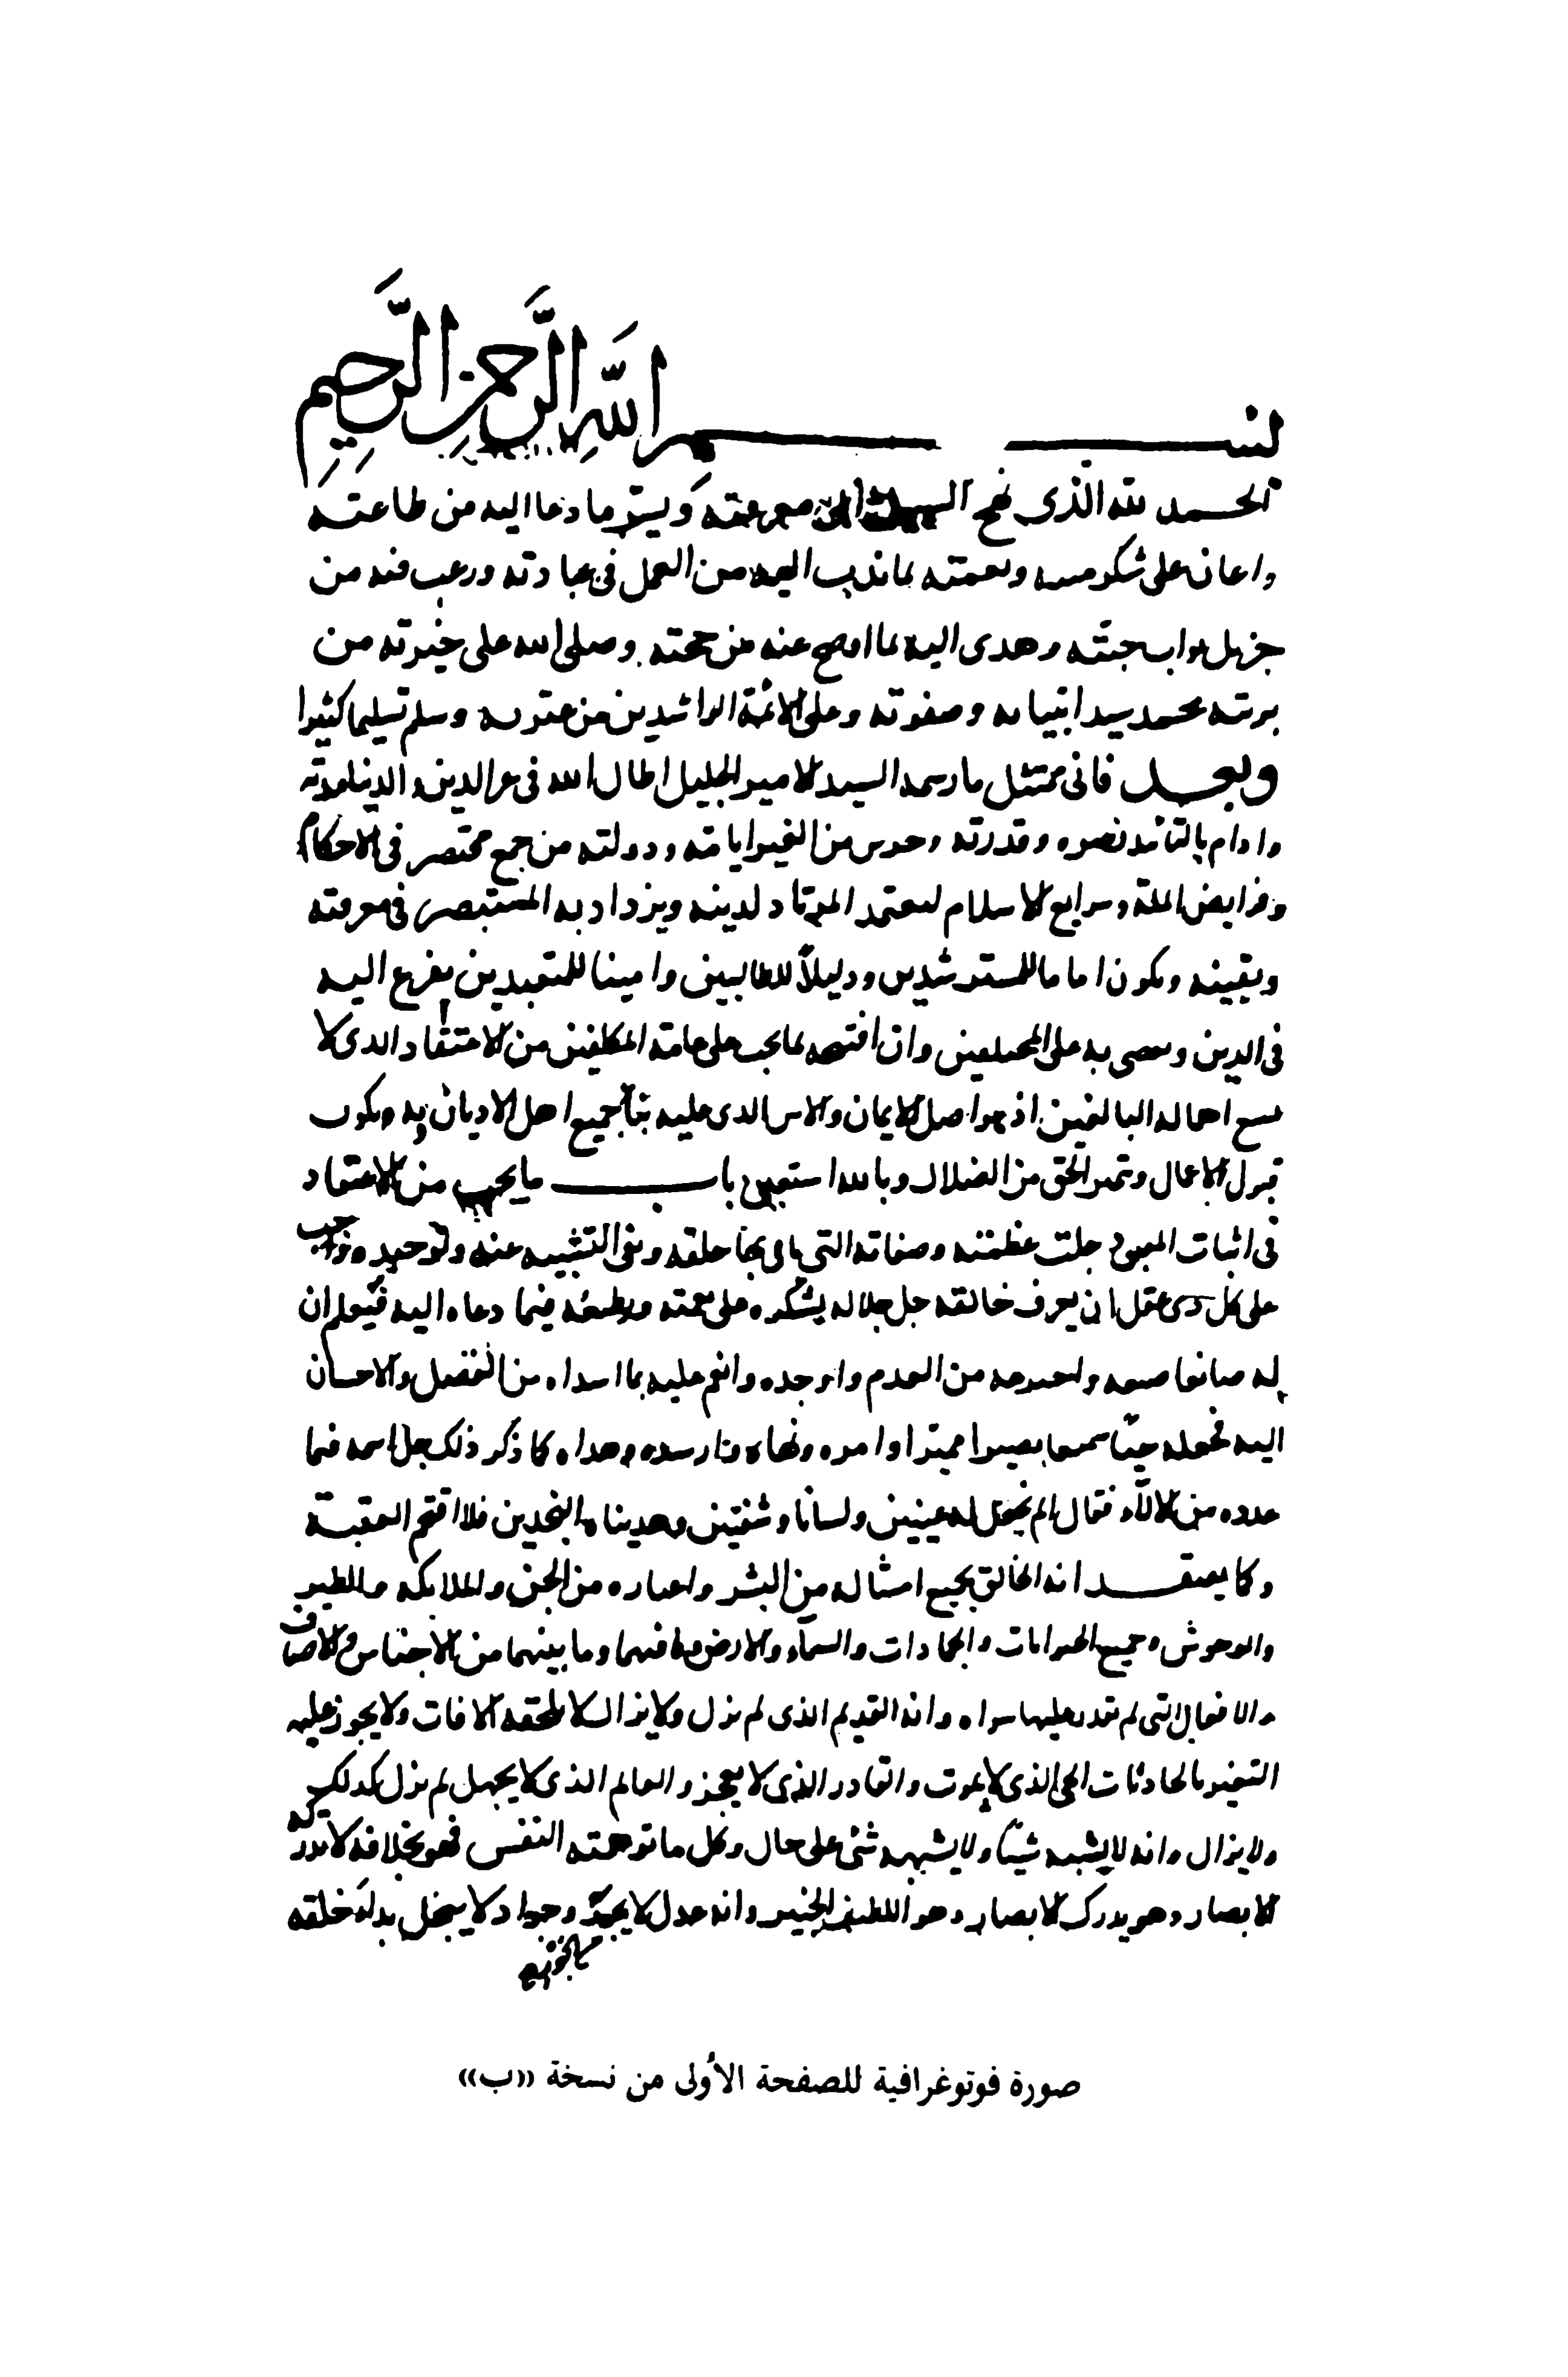 بسم الله الرحمن الرحيم
الحمد لله الذى نهج السبيل الى معرفته ويسّر ما دعا اليه من طاعته
واعان على شكر مننه ونعمته بما ندب اليه من العمل فى عبادته ورغب فيه من
جزيل ثواب جنّته وهدى اليه بما اوضح عنه من حجته وصلى الله على خيرته من
بريته محمد سيد انبيائه وصفوته وعلى الائمة الراشدين من عترته وسلم تسليما كثيرا
وبعد فانى ممتثل ما رسمه السيد الامير الجليل اطال الله فى عز الدين والدنيا مدته
وادام بالتأئيد نصره وقدرته وحرس من الغير ايامه ودولته من جمع مختصر فى الاحكام
وفرايض الملة وشرايع الاسلام ليعتمده المرتاد لدينه ويزداد به المستبصر فى معرفته
ويقينه ويكون اماما للمسترشدين ودليلاً للطالبين وامينا للمتعبدين يفزع اليه
فى الدين ويقضى به على المختلفين وان افتتحه بما يجب على عامة المكلفين من الاعتقاد الذى لا
يسع اهماله البالغين اذ هو اصل الايمان والاس الذى عليه بناء جميع اهل الاديان وبه ويكون
قبول الاعمال وتميز الحق من الضلال وبالله استعين باب ما يجب من الاعتقاد
فى اثبات المعبود جلت عظمته وصفاته التى باين بها خلقه ونفى التشبيه عنه وتوحيده فواجب
على كل ذى عقل ان يعرف خالقه جل جلاله ليشكره على نعمته ويطيعه فيما دعاه اليه فيعلم ان
له صانعا صنعه واخترعه من العدم واوجده وانعم عليه بما اسداه من الفضل والاحسان
اليه فجعله حيّا سميعا بصيرا مميّزا وامره ونهاه وارشده وهداه كما ذكر ذلك جل اسمه فيما
عدده من الالآء فقال الم نجعل له عينين ولسانا وشفتين وهديناه النجدين فلا اقتحم العقبة
وكما يعتقد انه الخالق لجميع امثاله من البشر واغياره من الجن والملايكه والطير
والوحوش وجميع الحيوانات والجمادات والسمآء والارض وما فيهما وما بينهما من الاجناس والاصناف
والافعال التى لم يقدر عليها سواه وانه القديم الذى لم يزل ولا يزال لا تلحقه الافات ولا يجوز عليه
التغيير بالحادثات الحى الذى لا يموت والقادر الذى لا يعجز والعالم الذى لا يجهل لم يزل كذلك
ولا يزال وانه لا يشبه شيئا ولا يشبهه شئ على حال وكل ما توهمته النفس فهو بخلافه لا تدركه
الابصار وهو يدرك الابصار وهو اللطيف الخبير وانه عدل لا يجور وجواد لا يبخل بدأ خلقه
صورة فوتوغرافية للصفحة الأولى من نسخة «ب»